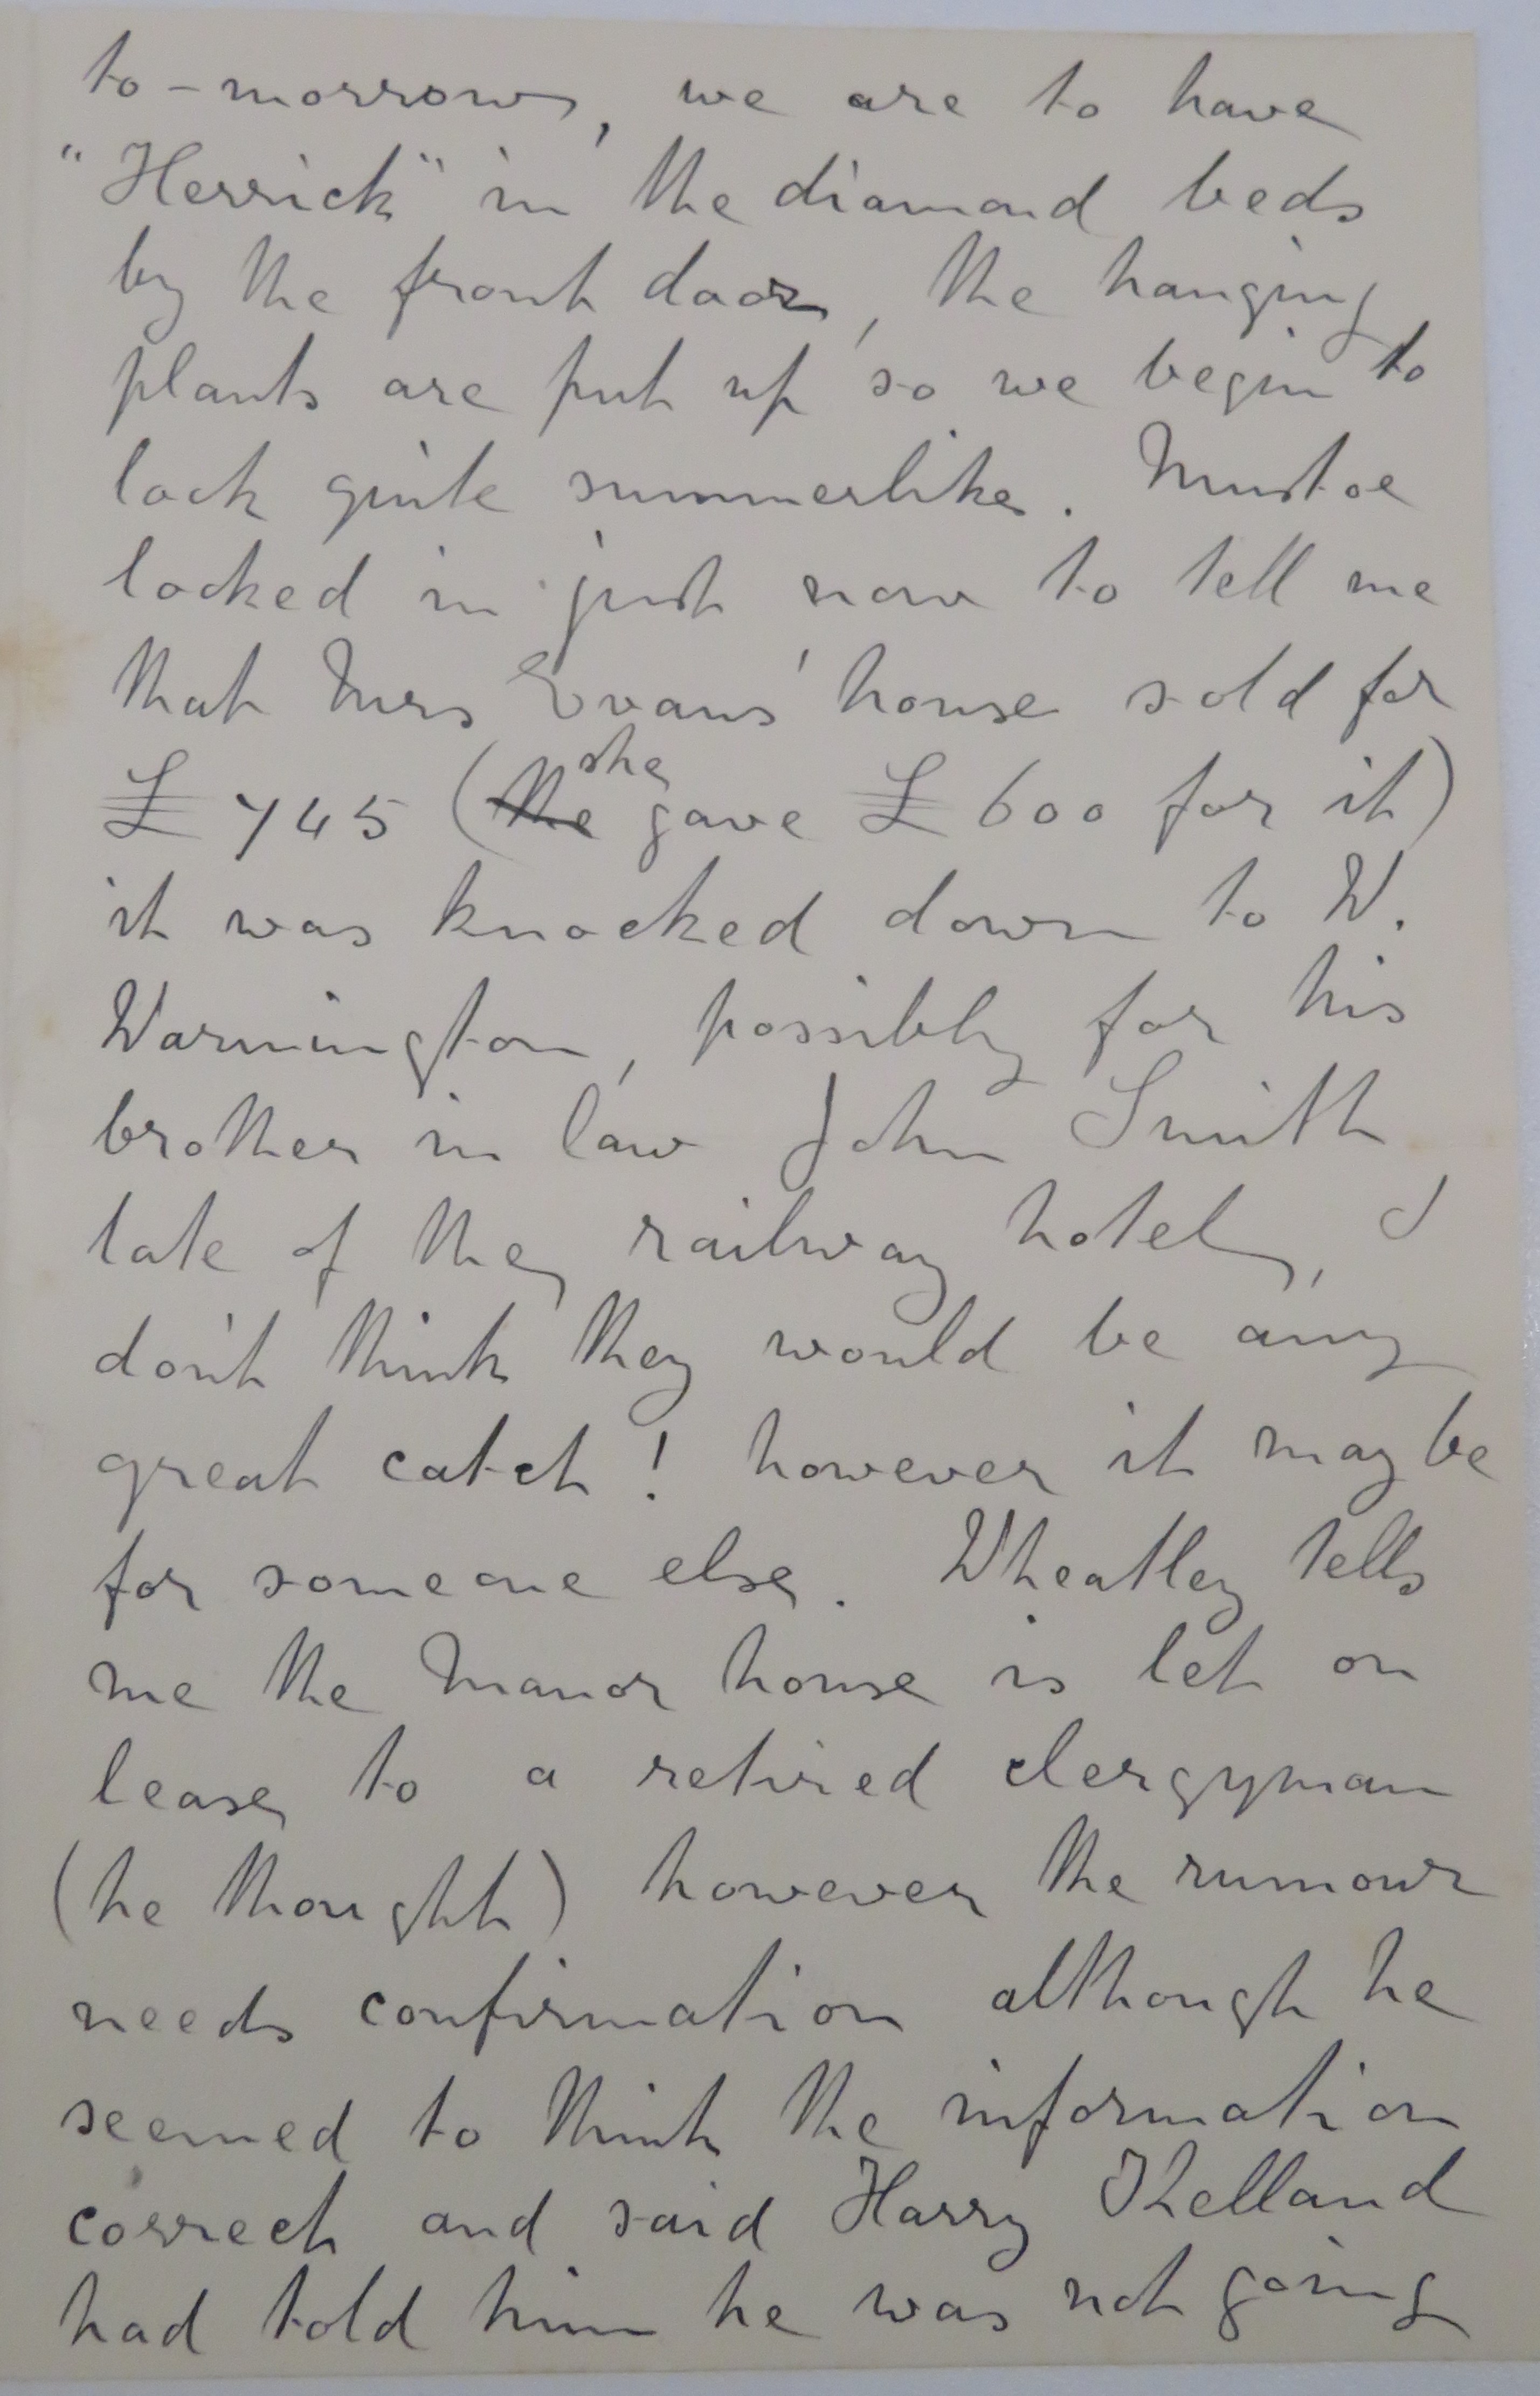 to-morrow, we are to have
"Herrick" in the diamond beds
by the front door, the hanging
plants are put up so we begin to
look quite summerlike. Mustoe
looked in just now to tell me
that Mrs Evans' house sold for
£745 (the she gave £600 for it)
it was knocked down to W.
Warmington, possibly for his
brother in law John Smith
late of the railway hotel, I
don't think they would be any
great catch! however it may be
for someone else. Wheatley tells
me the Manor house is let on
lease to a retired clergyman
(he thought) however the rumour
needs confirmation although he
seemed to think the information
correct and said Harry
had told him he was not going